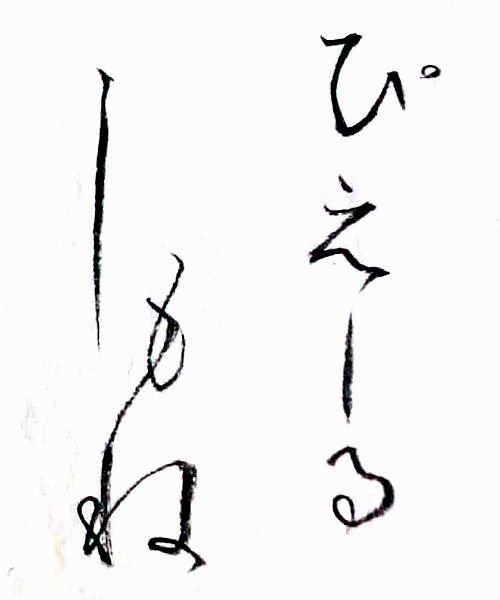 ぴえーる
しもね